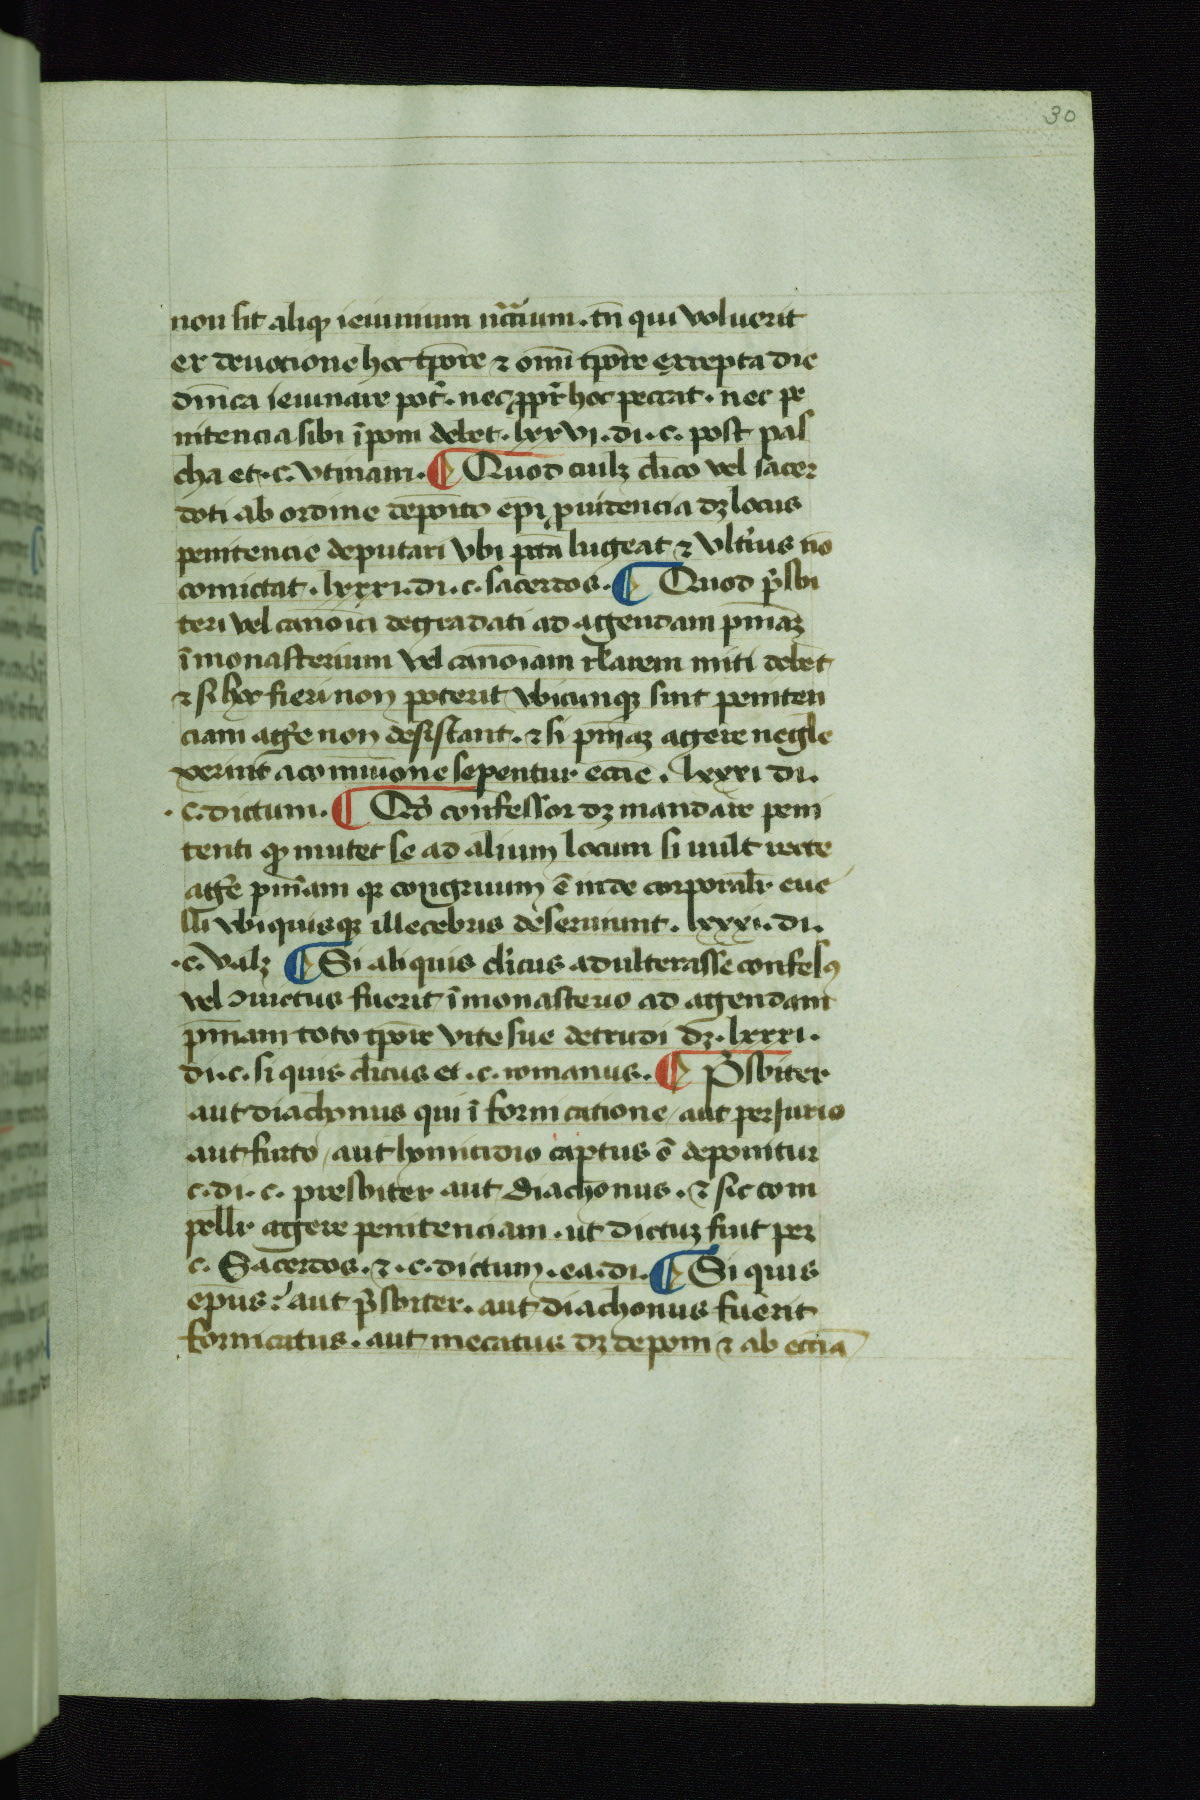 30
non sit aliqđ ieiunium nccium. tn̄ qui voluerit
ex deuocione hoc tp̄ore ⁊ omi tp̄ore excepta die
dn̄ica ieiunare pot̄. nec ꝓpt̄ hoc peccat. nec pe
nitencia sibi īponi debet. lxxvi. di. c. post pas
cha et. c. vtinam. ¶ Quod cuilꝫ cl̄ico vel sacer
doti ab ordine depōito ep̄i ꝓuidencia dꝫ locus
penitencie deputari vbi pc̄ta lugeat ⁊ vlt̄ius nō
comictat. lxxxi. di. c. sacerdos. ¶ Quod p̄sbi
teri vel canōici degradati ad agendam pn̄iaꝫ
ī monasterium vel canōiam rl̄arem miti debēt
⁊ si hoc fieri non poterit vbicunqꝫ sint peniten
ciam agr̄e non desistant. ⁊ si pn̄iaꝫ agere negle
xerint a comūione sepentur eccīe. lxxxi di.
. c. dictum. ¶ Qđ confessor dꝫ mandare peni
tenti qđ mutet se ad alium locum si uult recte
agr̄e pn̄iam qꝛ congruum ē inde corporalr̄ eue
lli vbi quisqꝫ illecebris deseruiunt. lxxxi. di.
. c. valꝫ ¶ Si aliquis cl̄icus adulterasse confesꝰ
vel ꝯuictus fuerit ī monasterio ad agendam
pn̄iam toto tp̄ore vite sue detrudi dꝫ. lxxxi.
di. c. si quis cl̄icus et. c. romanus. ¶ P̄sbiter
aut diachonus qui ī fornicatione / aut perjurio
aut furto / aut homicidio captus ē deponitur
c. di. c. presbiter aut diachonus. ⁊ sic com
pellr̄ agere penitenciam. ut dictuꝫ fuit per
c. Sacerdos. ⁊. c. dictum. ea. di. ¶ Si quis
ep̄us: aut p̄sbiter. aut diachonus fuerit
fornicatus. aut mecatus dꝫ deponi ⁊ ab eccīa